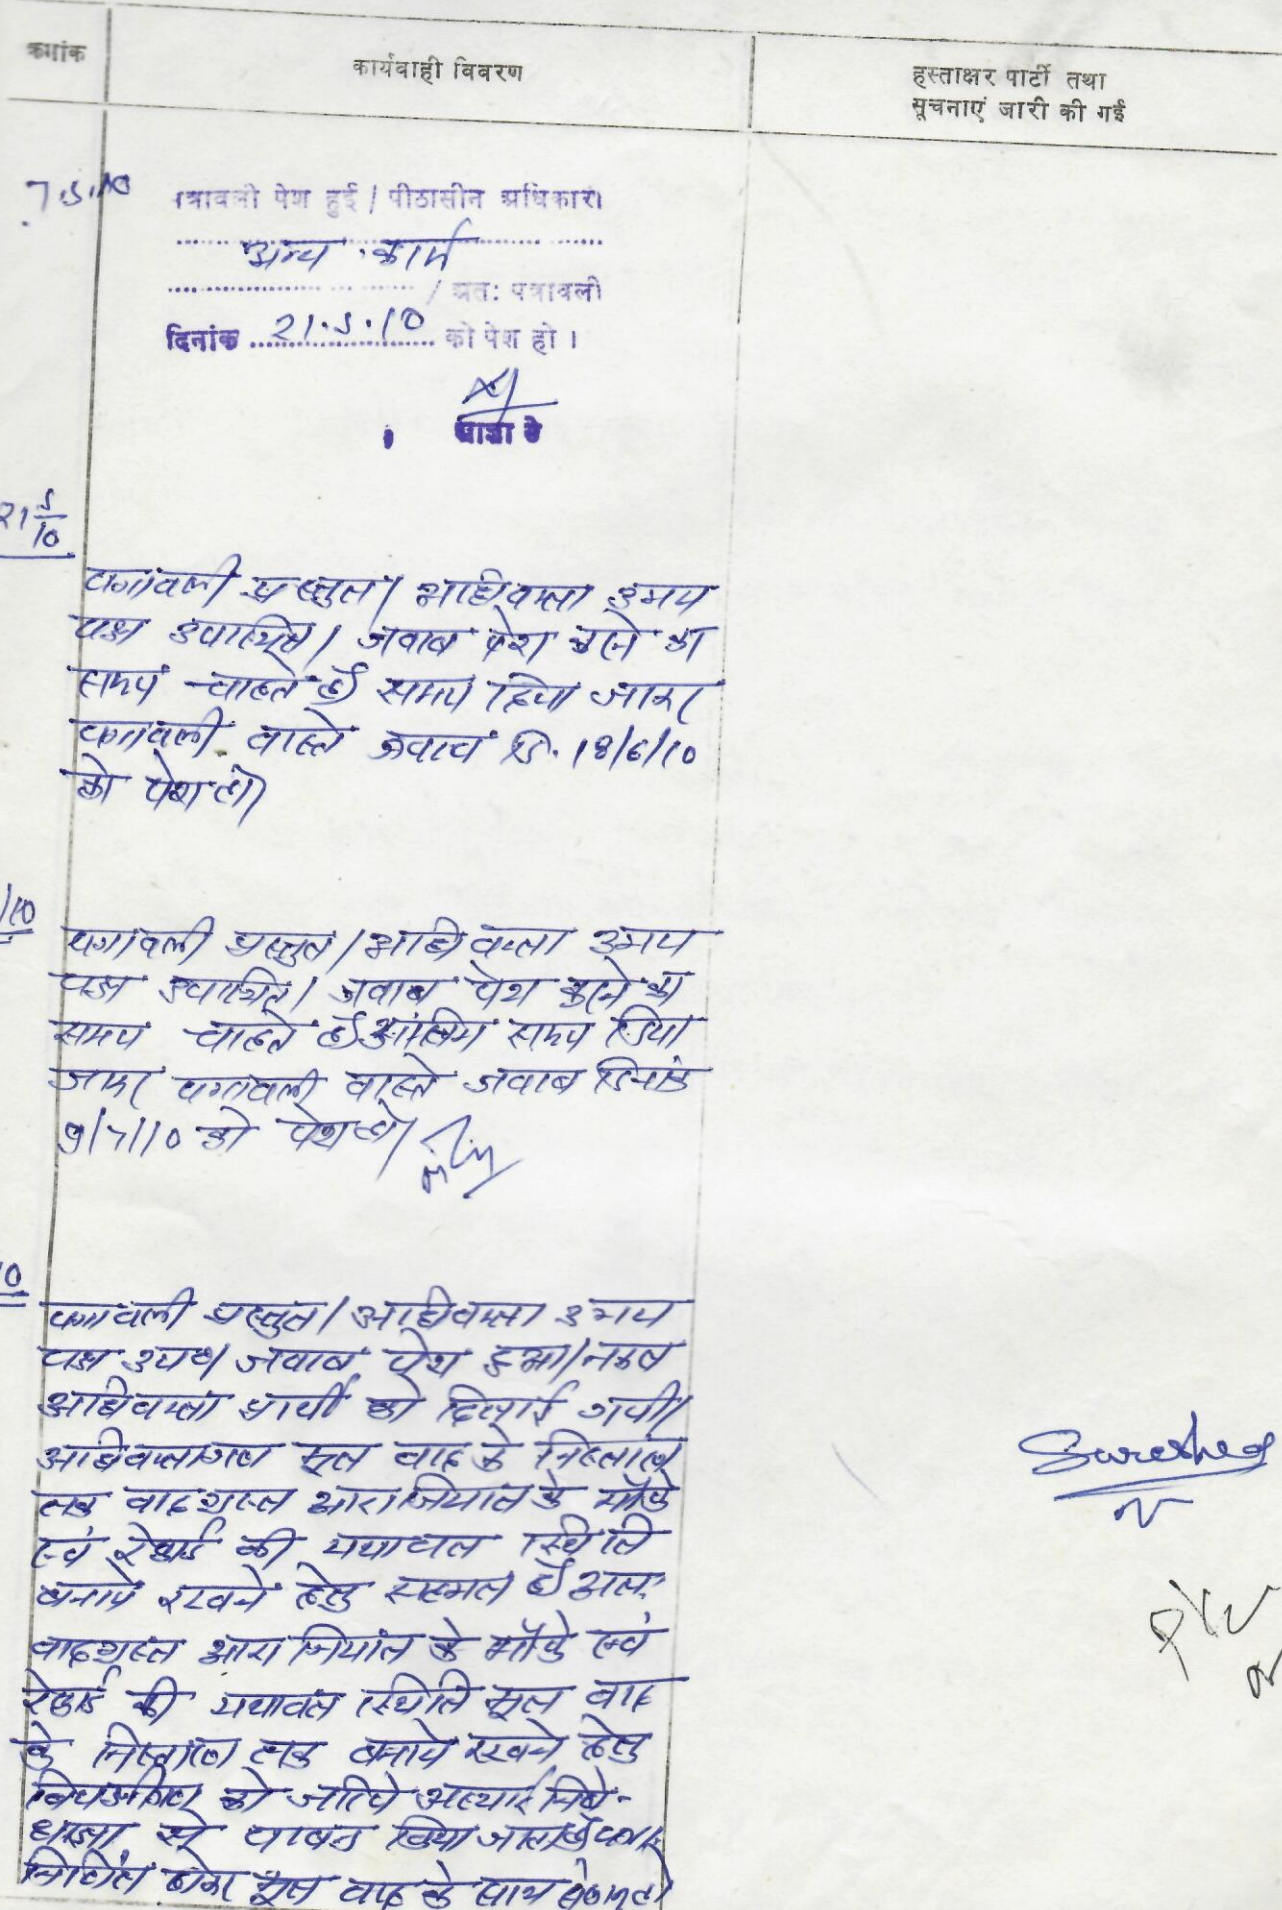 क्रमांक
कार्यवाही विवरण
हस्ताक्षर पार्टी तथा
सूचनाएं जारी की गई
7.5.10
पत्रावली पेश हुई / पीठासीन अधिकारी
अन्य कार्य
/ अत: पत्रावली
दिनांक 21.5.10 को पेश हो ।
आज्ञा से
21 5/10
पत्रावली प्रस्तुत। अधिवक्ता उभय
पक्ष उपस्थित। जवाब पेश करने का
समय चाहते है। समय दिया जाकर
पत्रावली वास्ते जवाब दि. 18/6/10
को पेश हो।
/10
पत्रावली प्रस्तुत। अधिवक्ता उभय
पक्ष उपस्थित। जवाब पेश करने का
समय चाहते है। अंतिम समय दिया
जाकर पत्रावली वास्ते जवाब दिनांक
9/7/10 को पेश हो।
10
पत्रावली प्रस्तुत। अधिवक्ता उभय
पक्ष उप०। जवाब पेश हुआ। नकल
अधिवक्ता प्रार्थी को दिलाई गयी।
अधिवक्तागण मूल वाद के निस्तारण
तक वादग्रस्त आराजियात के मौके
एवं रेकार्ड की यथावत स्थिति
बनाये रखने हेतु सहमत है। अतः
वादग्रस्त आराजियात के मौके एवं
रेकार्ड की यथावत स्थिति मूल वाद
के निस्तारण तक बनाये रखने हेतु
विपक्षीगण को जरिये अस्थाई निषे-
धाज्ञा से पाबन्द किया जाता है।
निर्णित होकर मूल वाद के साथ संलग्न हो
Suresh